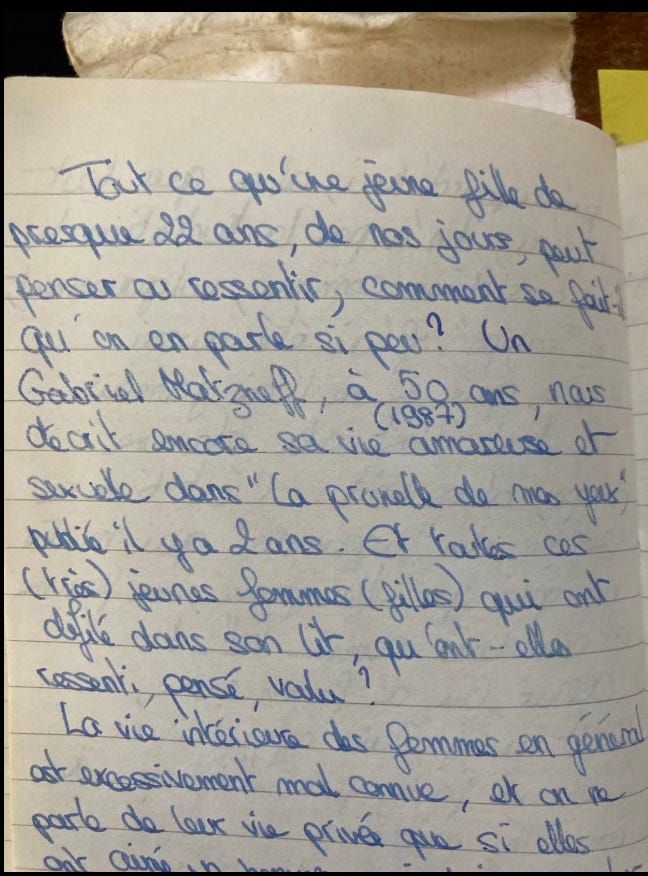 Tout ce qu'une jeune fille de
presque 22 ans, de nos jours, peut
penser ou ressentir, comment se fait-il
qu'on en parle si peu? Un
Gabriel Matzneff, à 50 ans, nous
(1987)
décrit encore sa vie amoureuse et
sexuelle dans "La prunelle de mes yeux"
publié il y a 2 ans. Et toutes ces
(très) jeunes femmes (filles) qui ont
défilé dans son lit, qu'ont-elles
ressenti, pensé, voulu?
La vie intérieure des femmes en général
est excessivement mal connue, et on ne
parle de leur vie privée que si elles
ont aimé un